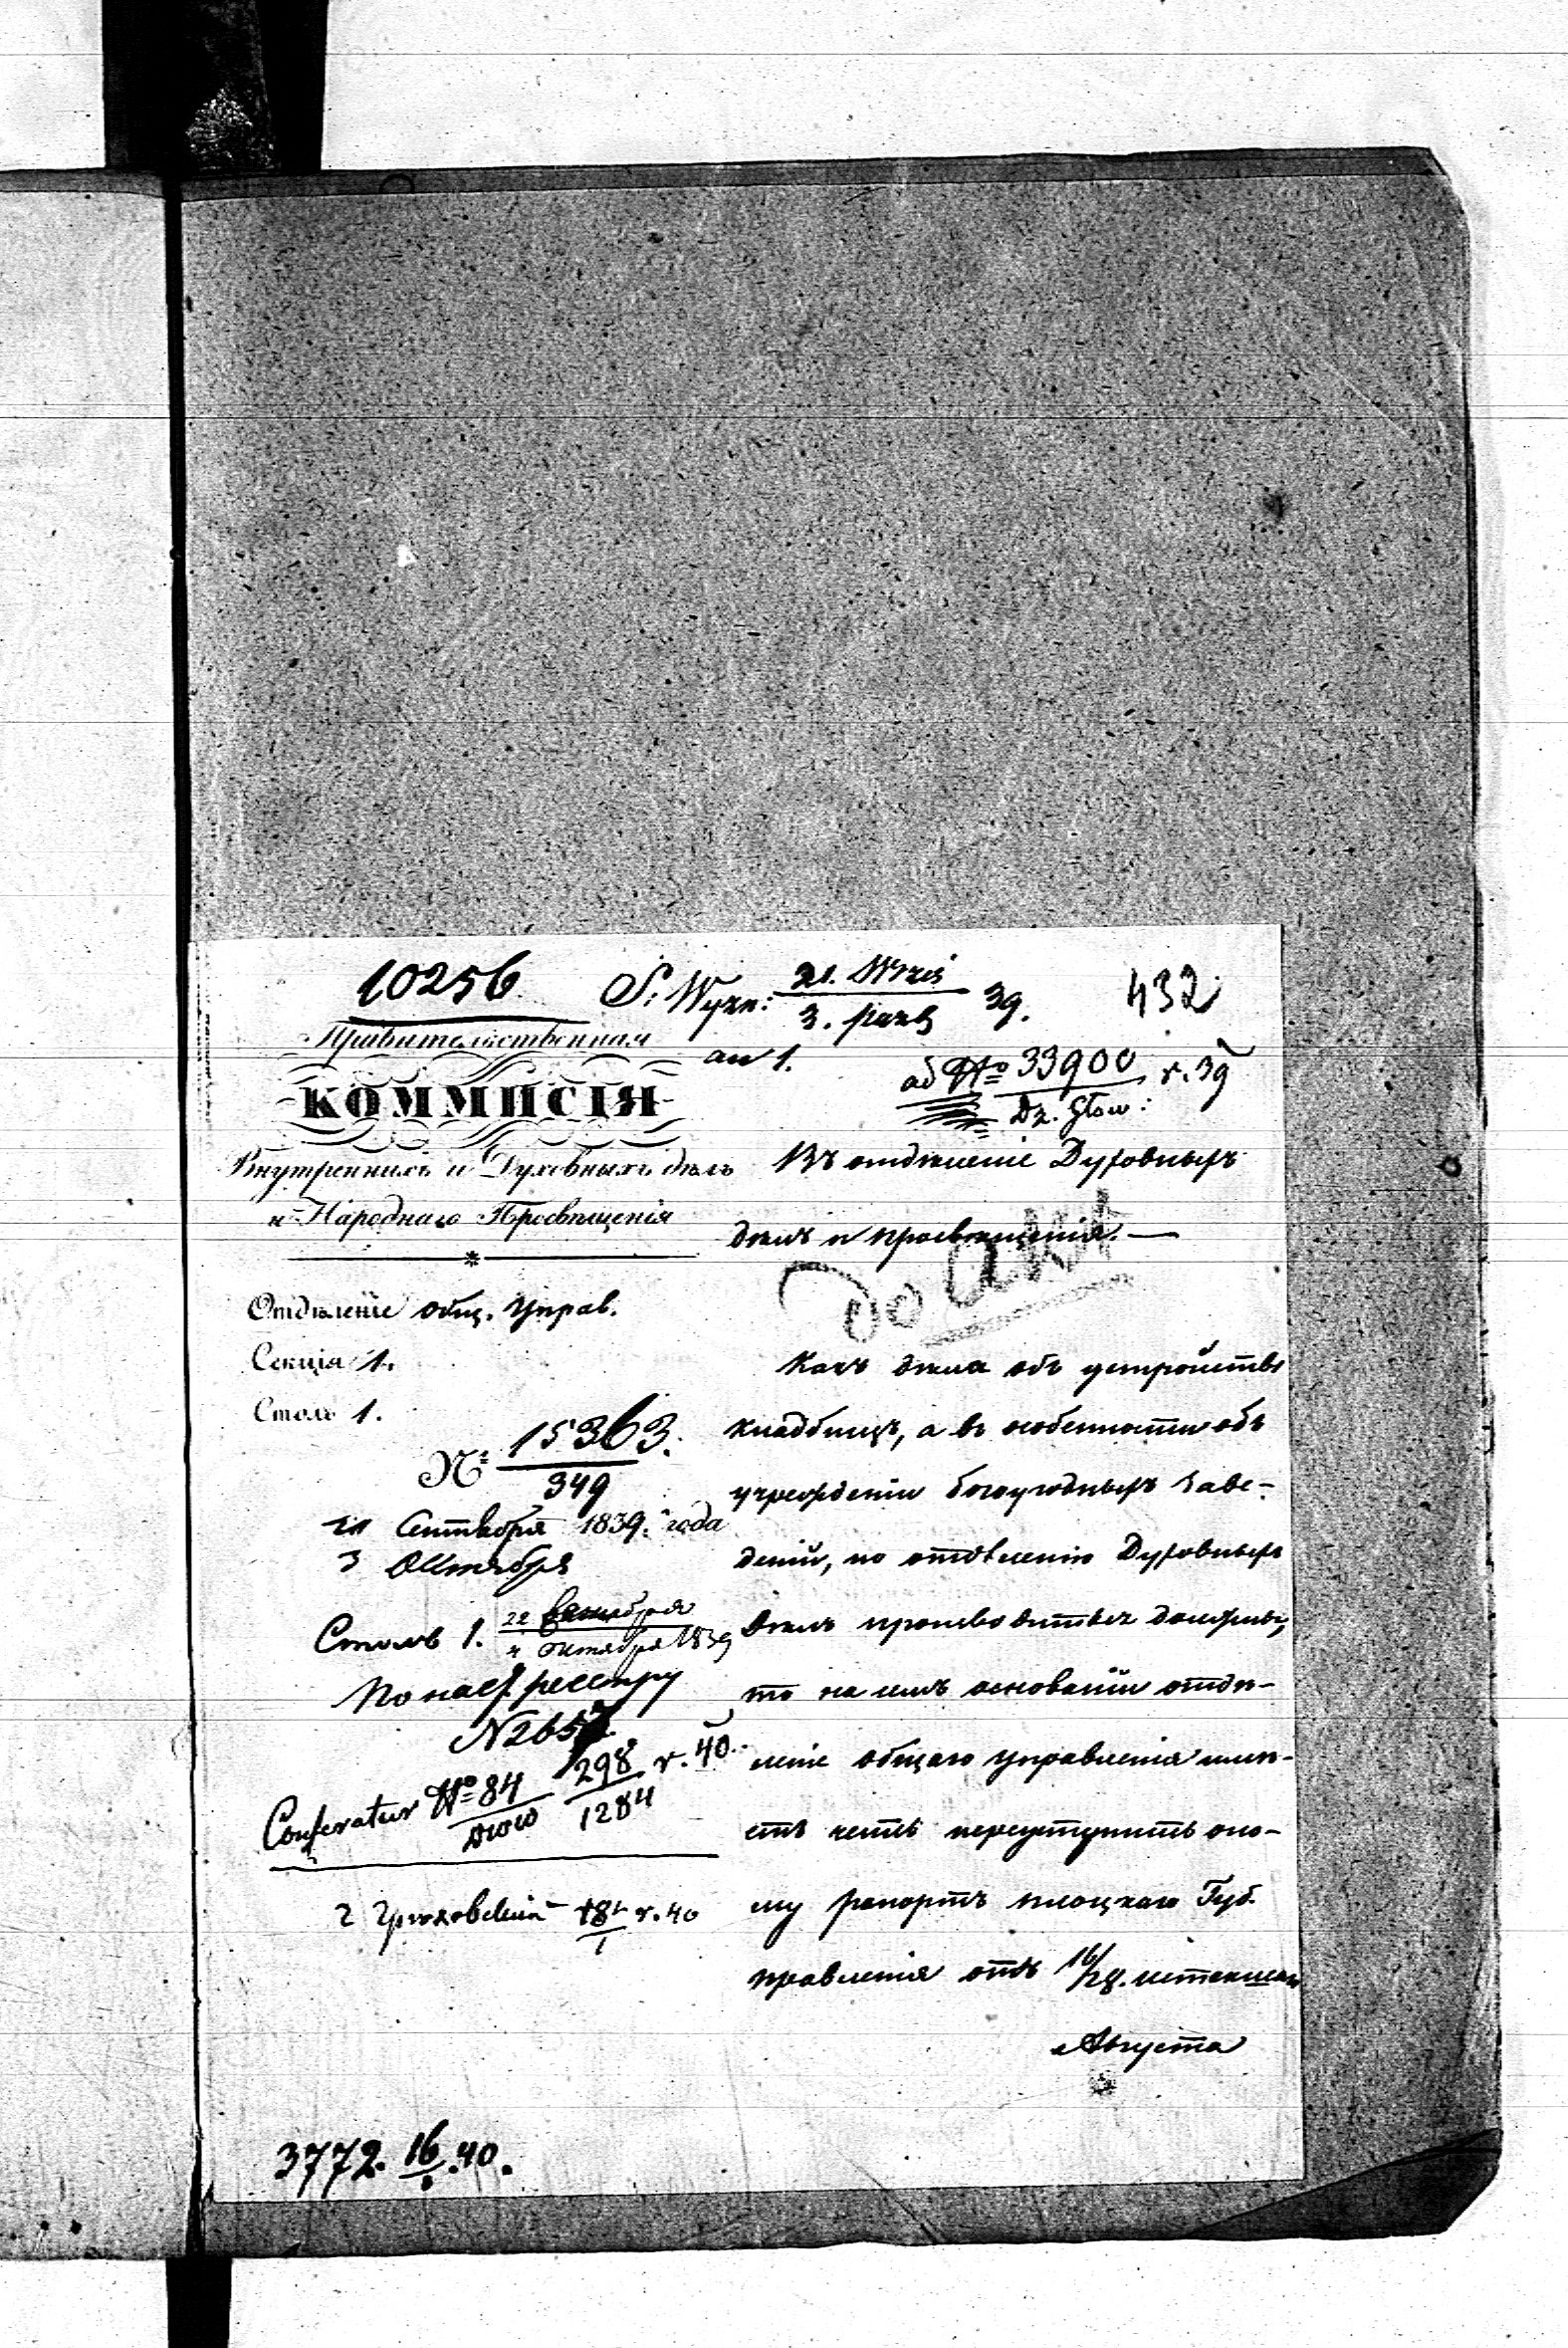 10256
S. Wyzn: 21. Wrześ / 3. paźdz 39.
432
an 1.
ad No 33900 / Dz. Głów: r. 39
Правительственная
КОММИСІЯ
Внутреннихъ и Духовныхъ дѣлъ
и Народнаго Просвѣщенія
Отдѣленіе общ. Управ.
Секція 1.
Столъ 1.
№ 15363. / 349
21 Сентября 1839. года
3 Октября
Столъ 1. 22 Сентября / 4 Октября 1839
По наст. реестру
N 265
Conferatur No 84 / 298 / 1284 r. 40.
r. 40
3772. 16/1. 40.
Въ отдѣленіе Духовныхъ
дѣлъ и просвѣщенія. —
Do akt
Какъ дѣла объ устройствѣ
кладбищъ, а въ особенности объ
учрежденіи богоугодныхъ Заве-
деній, по отдѣленію Духовныхъ
дѣлъ производиться должны,
то на семъ основаніи отдѣ-
леніе общаго управленія имѣ-
етъ честь переуступить оно-
му рапортъ плоцкаго Губ.
правленія отъ 16/28. истекшаго
Августа